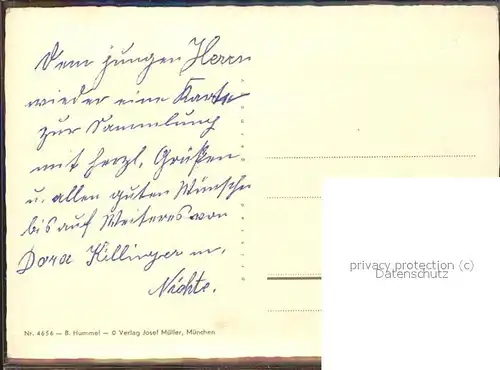 Dem jungen Herrn
wieder eine Karte
zur Sammlung
mit herzl. Grüßen
u. allen guten Wünschen
bis auf Weiteres von
Dora Killinger m.
Nichte.
Nr. 4656 — B. Hummel — © Verlag Josef Müller, München
privacy protection (c)
Datenschutz